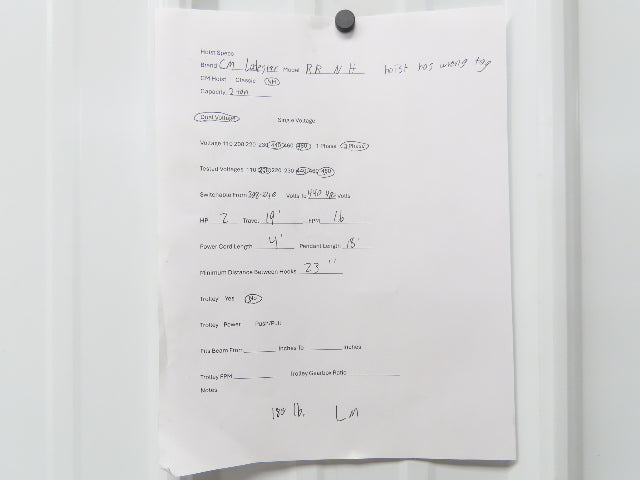 Hoist Specs
Brand CM Lodestar Model RR NH hoist has wrong tag
CM Hoist Classic NH
Capacity 2 ton
Dual Voltage Single Voltage
Voltage 110 208 220 230 440 460 480 1 Phase 3 Phase
Tested Voltages 110 208 220 230 440 460 480
Switchable From 208-240 Volts To 440 480 Volts
HP 2 Travel 19' FPM 16
Power Cord Length 4' Pendant Length 18'
Minimum Distance Between Hooks 23"
Trolley Yes No
Trolley Power Push/Pull
Fits Beam From Inches To Inches
Trolley FPM Trolley Gearbox Ratio
Notes
lb. LM